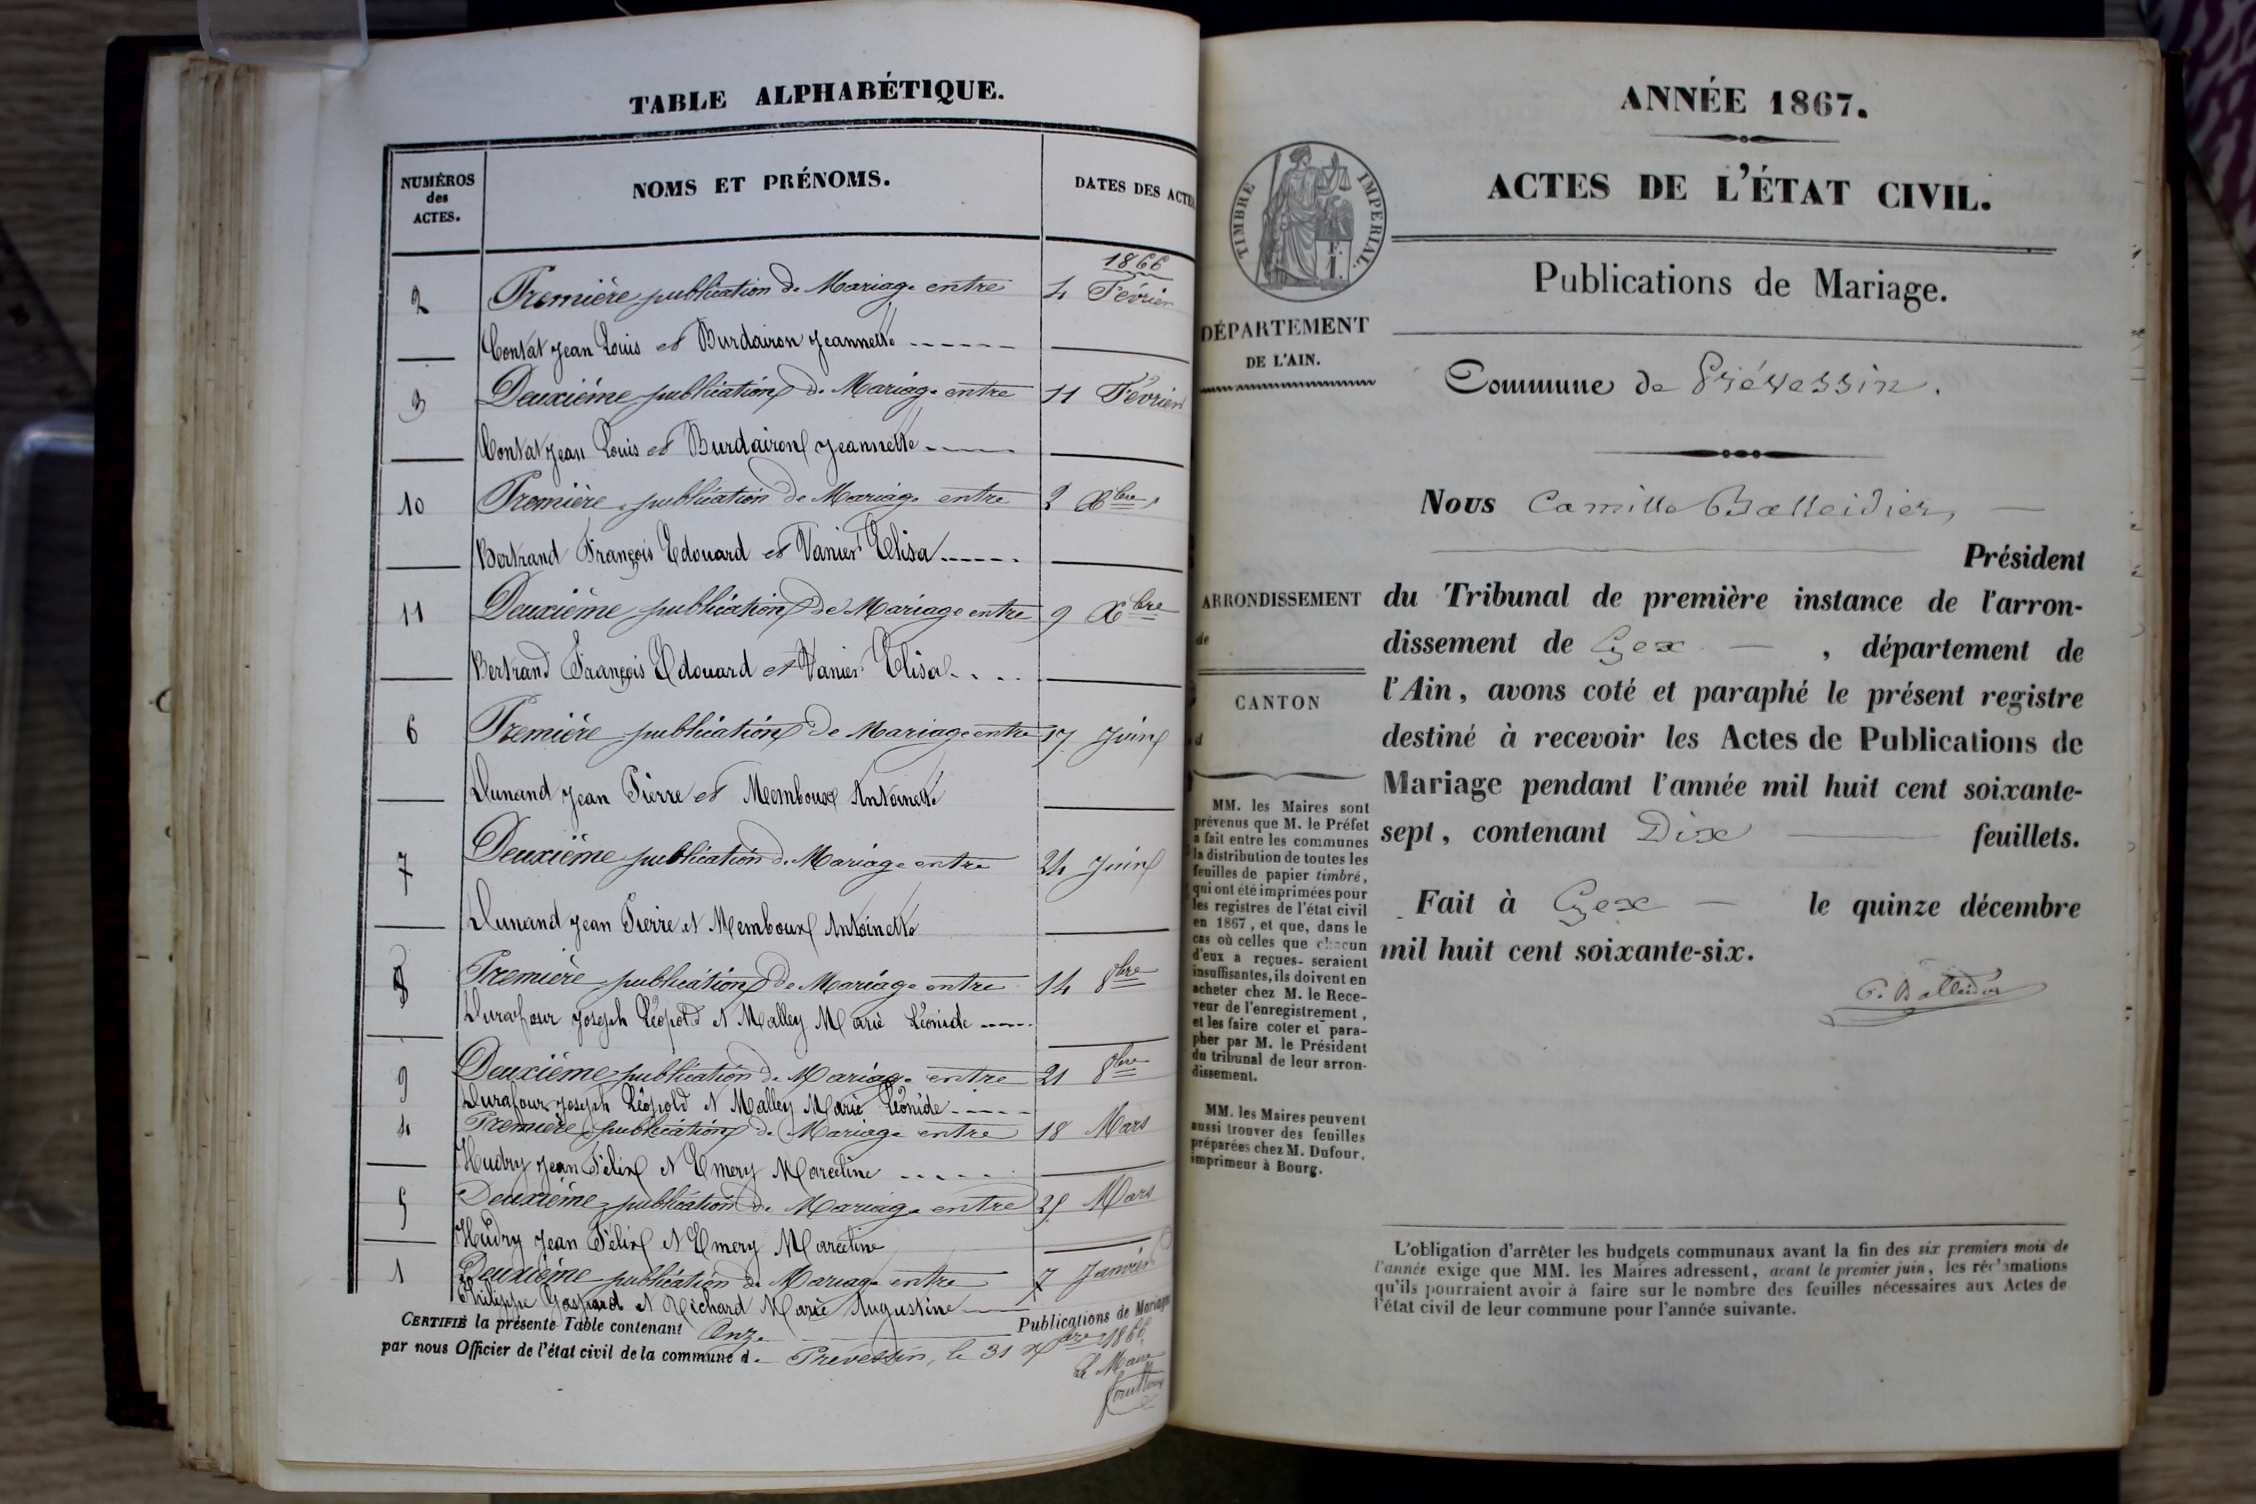 TABLE ALPHABÉTIQUE.
NUMÉROS des ACTES.
NOMS ET PRÉNOMS.
DATES DES ACTES
1866
2 Première publication de Mariage entre 4 Février
Contat Jean Louis et Burdairon Jeannette
3 Deuxième publication de Mariage entre 11 Février
Contat Jean Louis et Burdairon Jeannette
10 Première publication de Mariage entre 2 Xbre
Bertrand François Edouard et Vanier Elisa
11 Deuxième publication de Mariage entre 9 Xbre
Bertrand François Edouard et Vanier Elisa
6 Première publication de Mariage entre 17 Juin
Dunand Jean Pierre et Memboux Antoinette
7 Deuxième publication de Mariage entre 24 Juin
Dunand Jean Pierre et Memboux Antoinette
8 Première publication de Mariage entre 14 8bre
Durafour Joseph Léopold et Malley Marie Léonide
9 Deuxième publication de Mariage entre 21 8bre
Durafour Joseph Léopold et Malley Marie Léonide
4 Première publication de Mariage entre 18 Mars
Hudry Jean Félix et Emery Marceline
5 Deuxième publication de Mariage entre 25 Mars
Hudry Jean Félix et Emery Marceline
1 Deuxième publication de Mariage entre 7 Janvier
Philippe Gaspard et Richard Marie Augustine
CERTIFIÉ la présente Table contenant Onze Publications de Mariage
par nous Officier de l'état civil de la commune de Prévessin, le 31 Xbre 1866
Le Maire
ANNÉE 1867.
ACTES DE L'ÉTAT CIVIL.
TIMBRE IMPÉRIAL.
Publications de Mariage.
DÉPARTEMENT
DE L'AIN.
Commune de Prévessin.
Nous Camille Balleidier,
Président
ARRONDISSEMENT
de
CANTON
du Tribunal de première instance de l'arron-
dissement de Gex , département de
l'Ain, avons coté et paraphé le présent registre
destiné à recevoir les Actes de Publications de
Mariage pendant l'année mil huit cent soixante-
sept, contenant Dix feuillets.
Fait à Gex le quinze décembre
mil huit cent soixante-six.
C. Balleidier
MM. les Maires sont
prévenus que M. le Préfet
a fait entre les communes
la distribution de toutes les
feuilles de papier timbré,
qui ont été imprimées pour
les registres de l'état civil
en 1867, et que, dans le
cas où celles que chacun
d'eux a reçues seraient
insuffisantes, ils doivent en
acheter chez M. le Rece-
veur de l'enregistrement,
et les faire coter et para-
pher par M. le Président
du tribunal de leur arron-
dissement.
MM. les Maires peuvent
aussi trouver des feuilles
préparées chez M. Dufour,
imprimeur à Bourg.
L'obligation d'arrêter les budgets communaux avant la fin des six premiers mois de
l'année exige que MM. les Maires adressent, avant le premier juin, les réclamations
qu'ils pourraient avoir à faire sur le nombre des feuilles nécessaires aux Actes de
l'état civil de leur commune pour l'année suivante.